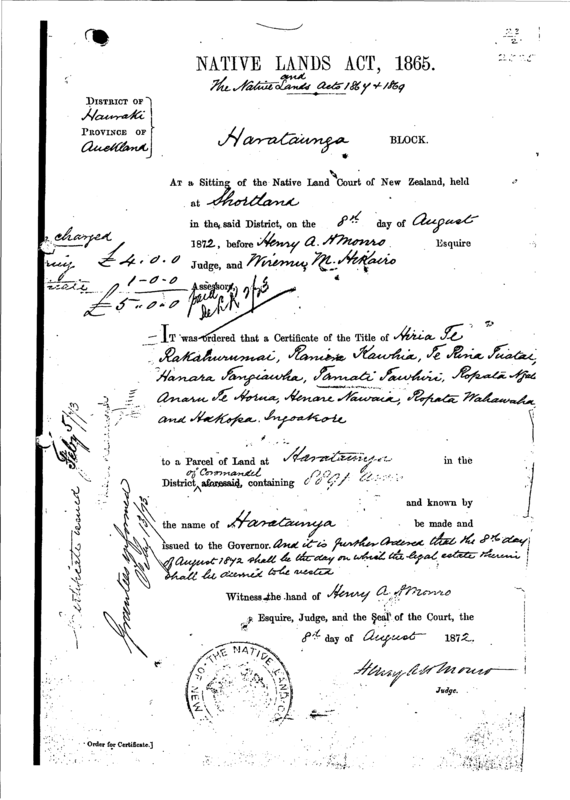 NATIVE LANDS ACT, 1865.
and
The Native Lands Acts 1867 & 1869
DISTRICT OF
Hauraki
PROVINCE OF
Auckland
Harataunga BLOCK.
AT a Sitting of the Native Land Court of New Zealand, held
at Shortland
in the said District, on the 8th day of August
1872, before Henry A. H Monro Esquire
Judge, and Wiremu M. Hikairo
Assessor,
charged
£4.0.0
1-0-0
£5.0.0
paid
7/23
IT was ordered that a Certificate of the Title of Hiria Te
Rakahurumai, Raniera Kawhia, Te Rina Tuatai,
Hanara Tangiawha, Tamati Tawhiri, Ropata Ngat
Anaru Te Horua, Henare Nawaia, Ropata Wahawaha
and Hakopa
to a Parcel of Land at Harataunga in the
of Coromandel
District aforesaid, containing
and known by
the name of Harataunga be made and
issued to the Governor. And it is further Ordered that the 8th day
of August 1872 shall be the day on which the legal estate therein
shall be deemed to be vested
Witness the hand of Henry A H Monro
Esquire, Judge, and the Seal of the Court, the
8th day of August 1872.
Henry A H Monro
Judge.
THE NATIVE LAND
OF NEW
Certificate issued Feby 5/73
Grantees informed
Feby 13/73
Order for Certificate.]